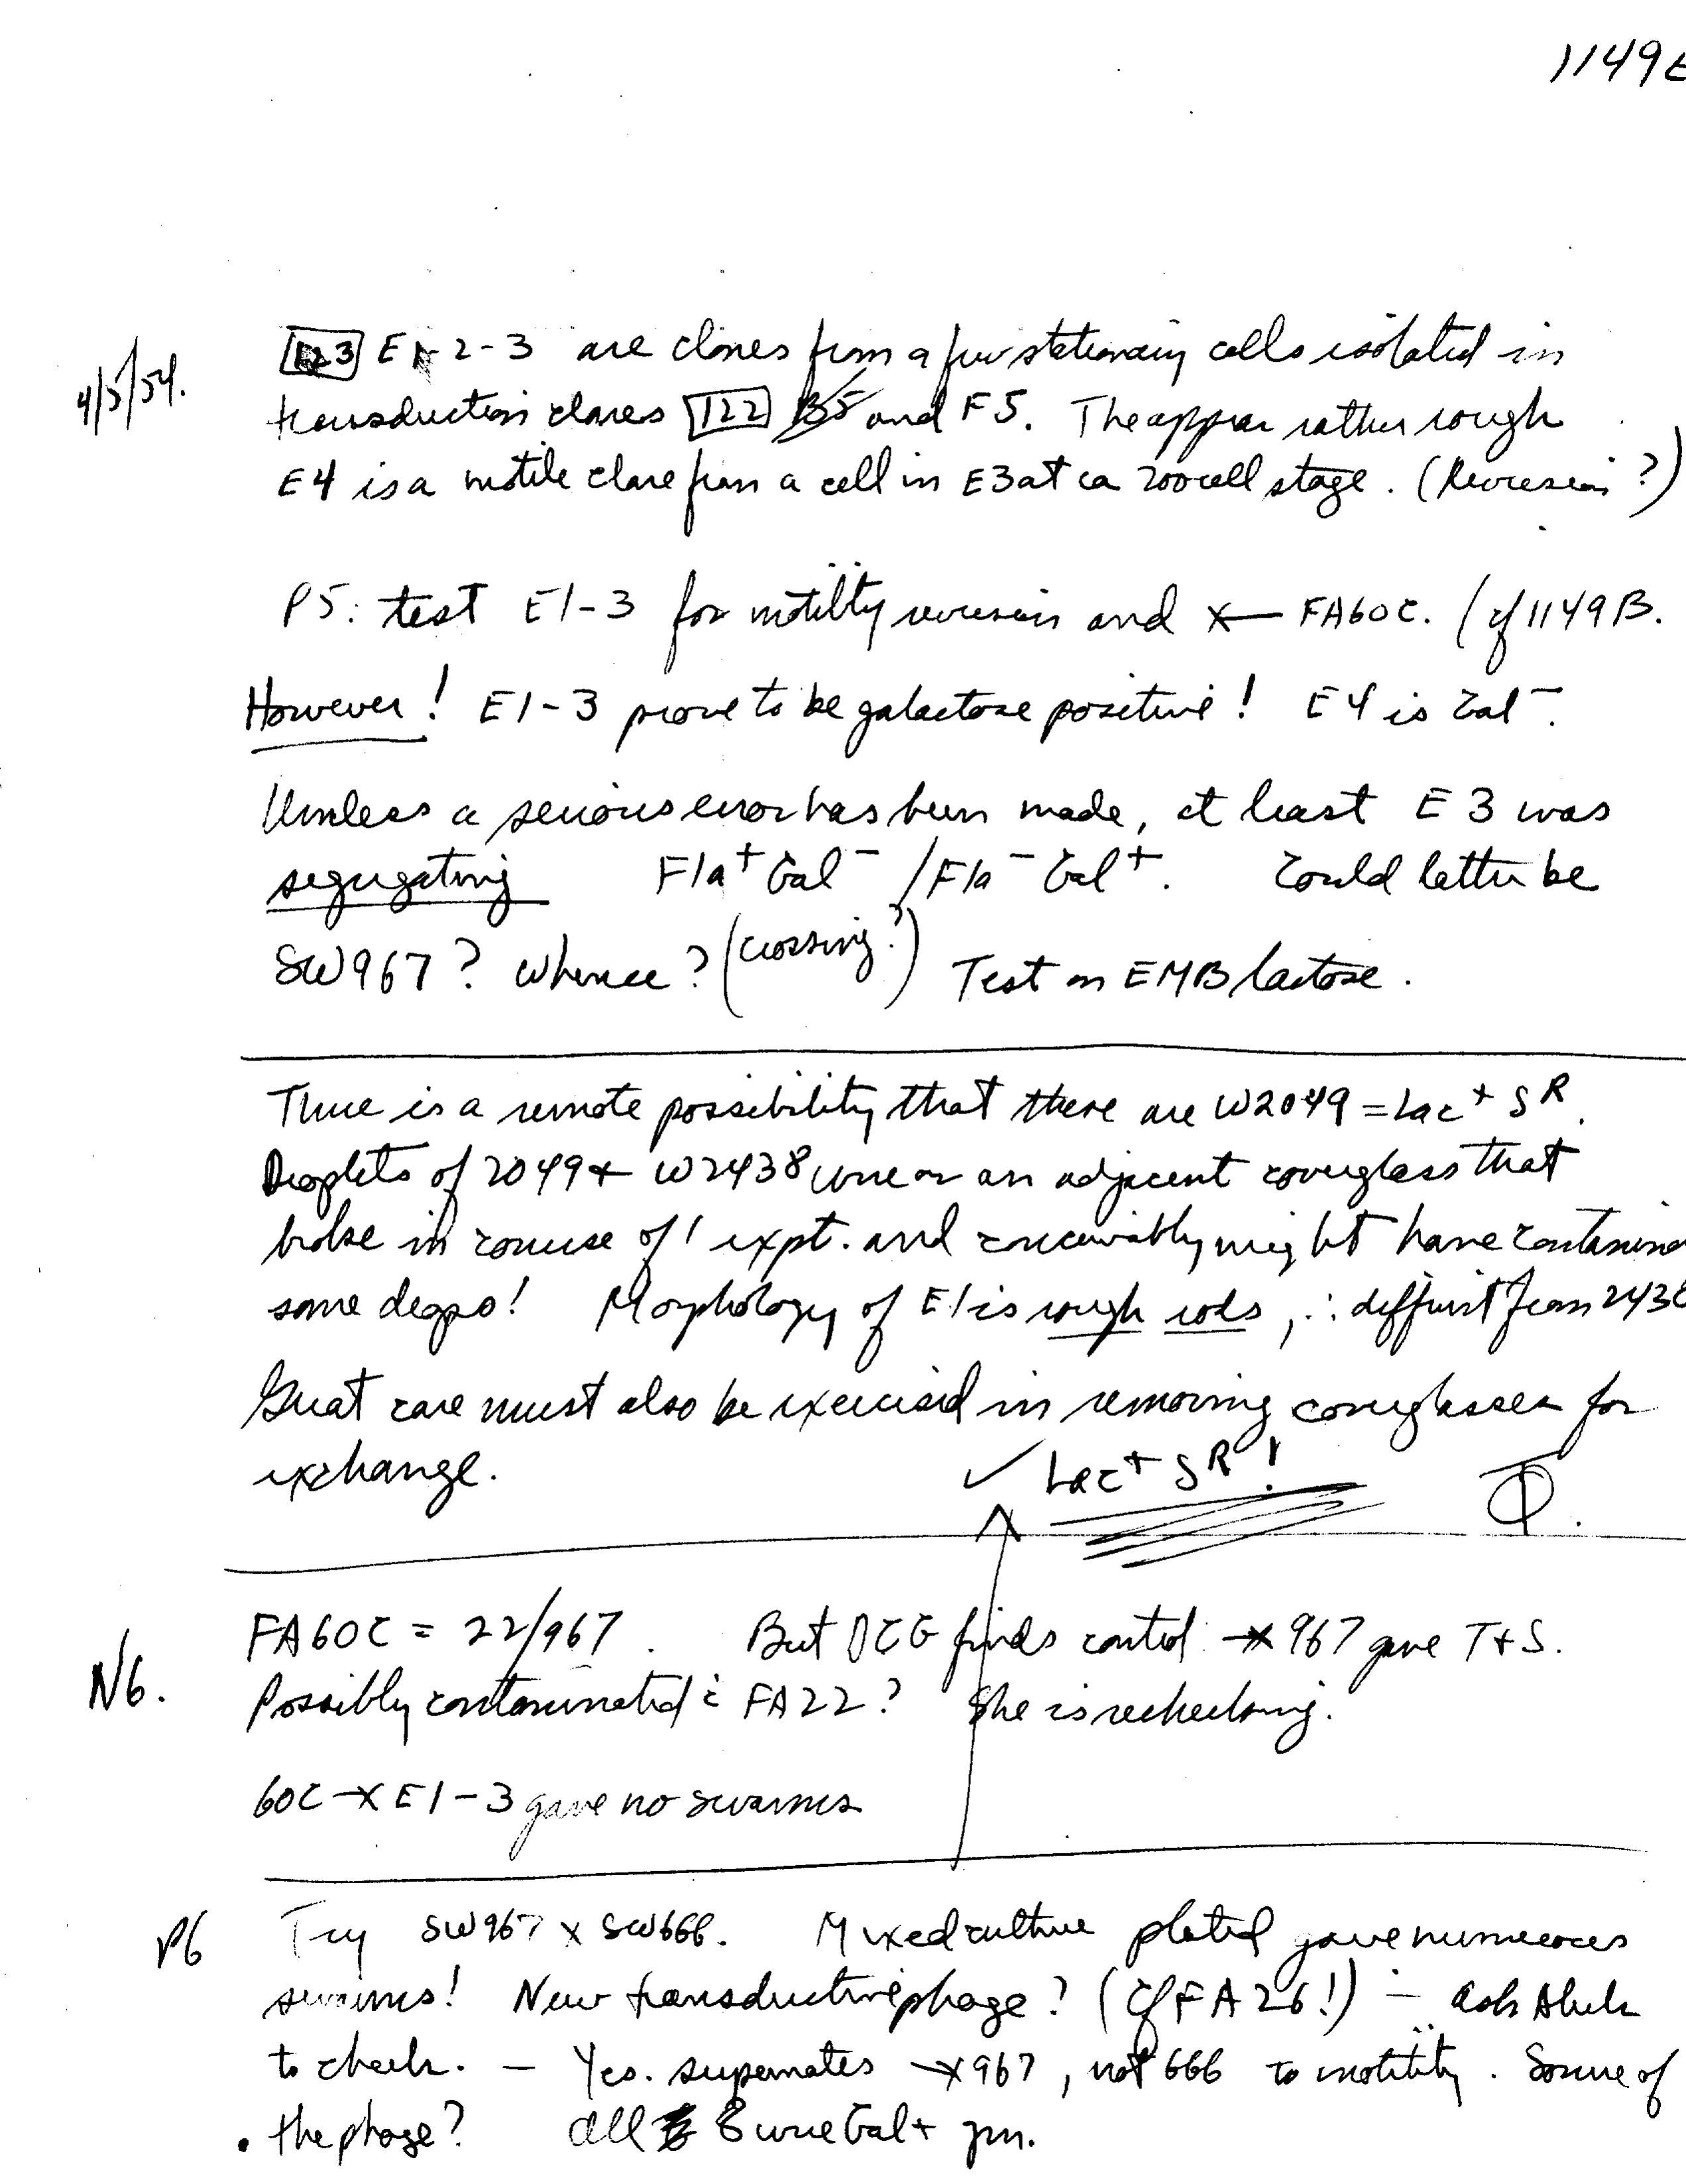 1149E
4/5/54. [123] E1-2-3 are clones from a few stationary cells isolated in
transduction clones [122] B5 and F5. The appear rather rough
E4 is a motile clone from a cell in E3 at ca 200 cell stage. (Reversion?)
P5: test E1-3 for motility reversion and x— FA60C. (cf 1149B.
However! E1-3 prove to be galactose positive! E4 is Gal⁻.
Unless a serious error has been made, at least E3 was
segregating Fla⁺ Gal⁻ / Fla⁻ Gal⁺. Could latter be
SW967? Whence? (crossing?) Test on EMB lactose.
There is a remote possibility that there are W2049 = Lac⁺ Sᴿ.
Droplets of 2049 + W2438 were on an adjacent coverglass that
broke in course of 1 expt. and conceivably might have contamina
some drops! Morphology of E1 is rough rods, ∴ different from 2438
Great care must also be exercised in removing coverglasses for
exchange. ✓ Lac⁺ Sᴿ!
N6. FA60C = 22/967. But DCG finds control —x 967 gave T+S.
Possibly contaminated c̄ FA22? She is rechecking.
60C —x E1-3 gave no swarms
P6 Try SW967 x SW666. Mixed culture plated gave numerous
swarms! New transductive phage? (cf FA26!) — ask
to check. — Yes. supernates —x 967, not 666 to motility. Source of
the phage? All 8 were Gal+